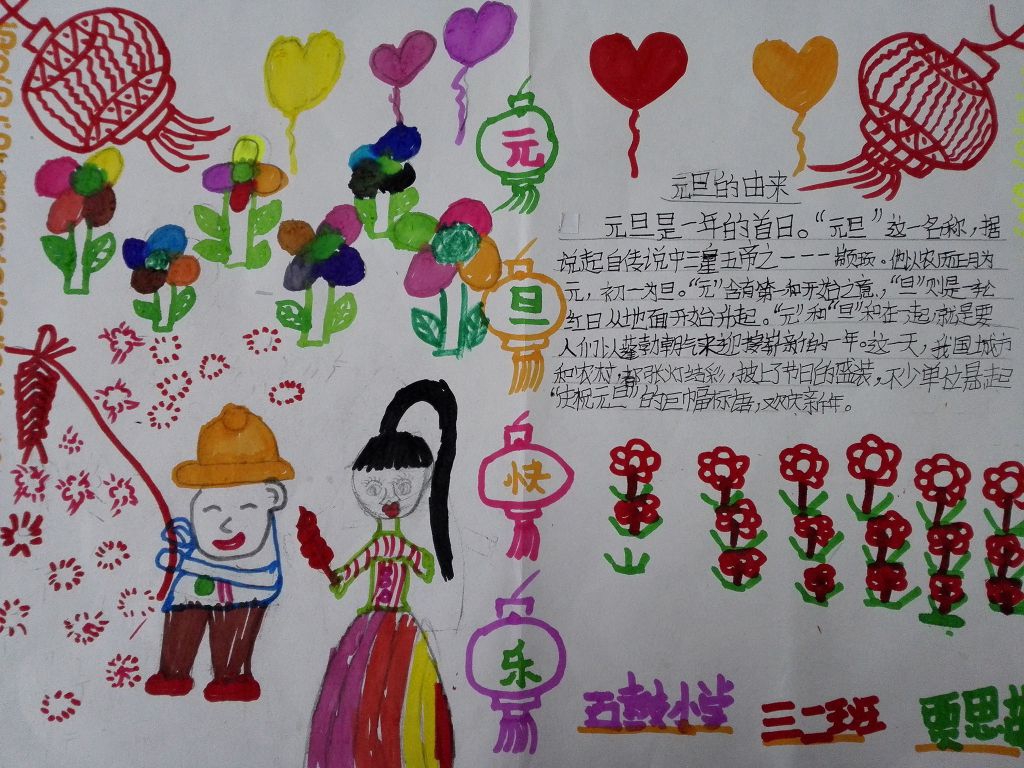 元
旦
快
乐
元旦的由来
元旦是一年的首日。“元旦”这一名称,据
说起自传说中三皇五帝之一---颛顼。他以农历正月为
元,初一为旦。“元”含有第一和开始之意,“旦”则是一轮
红日从地面开始升起。“元”和“旦”和在一起,就是要
人们以蓬勃朝气来迎接崭新的一年。这一天,我国城市
和农村,都张灯结彩,披上了节日的盛装,不少单位悬起
“庆祝元旦”的巨幅标语,欢庆新年。
石鼓小学
三一班
贾思